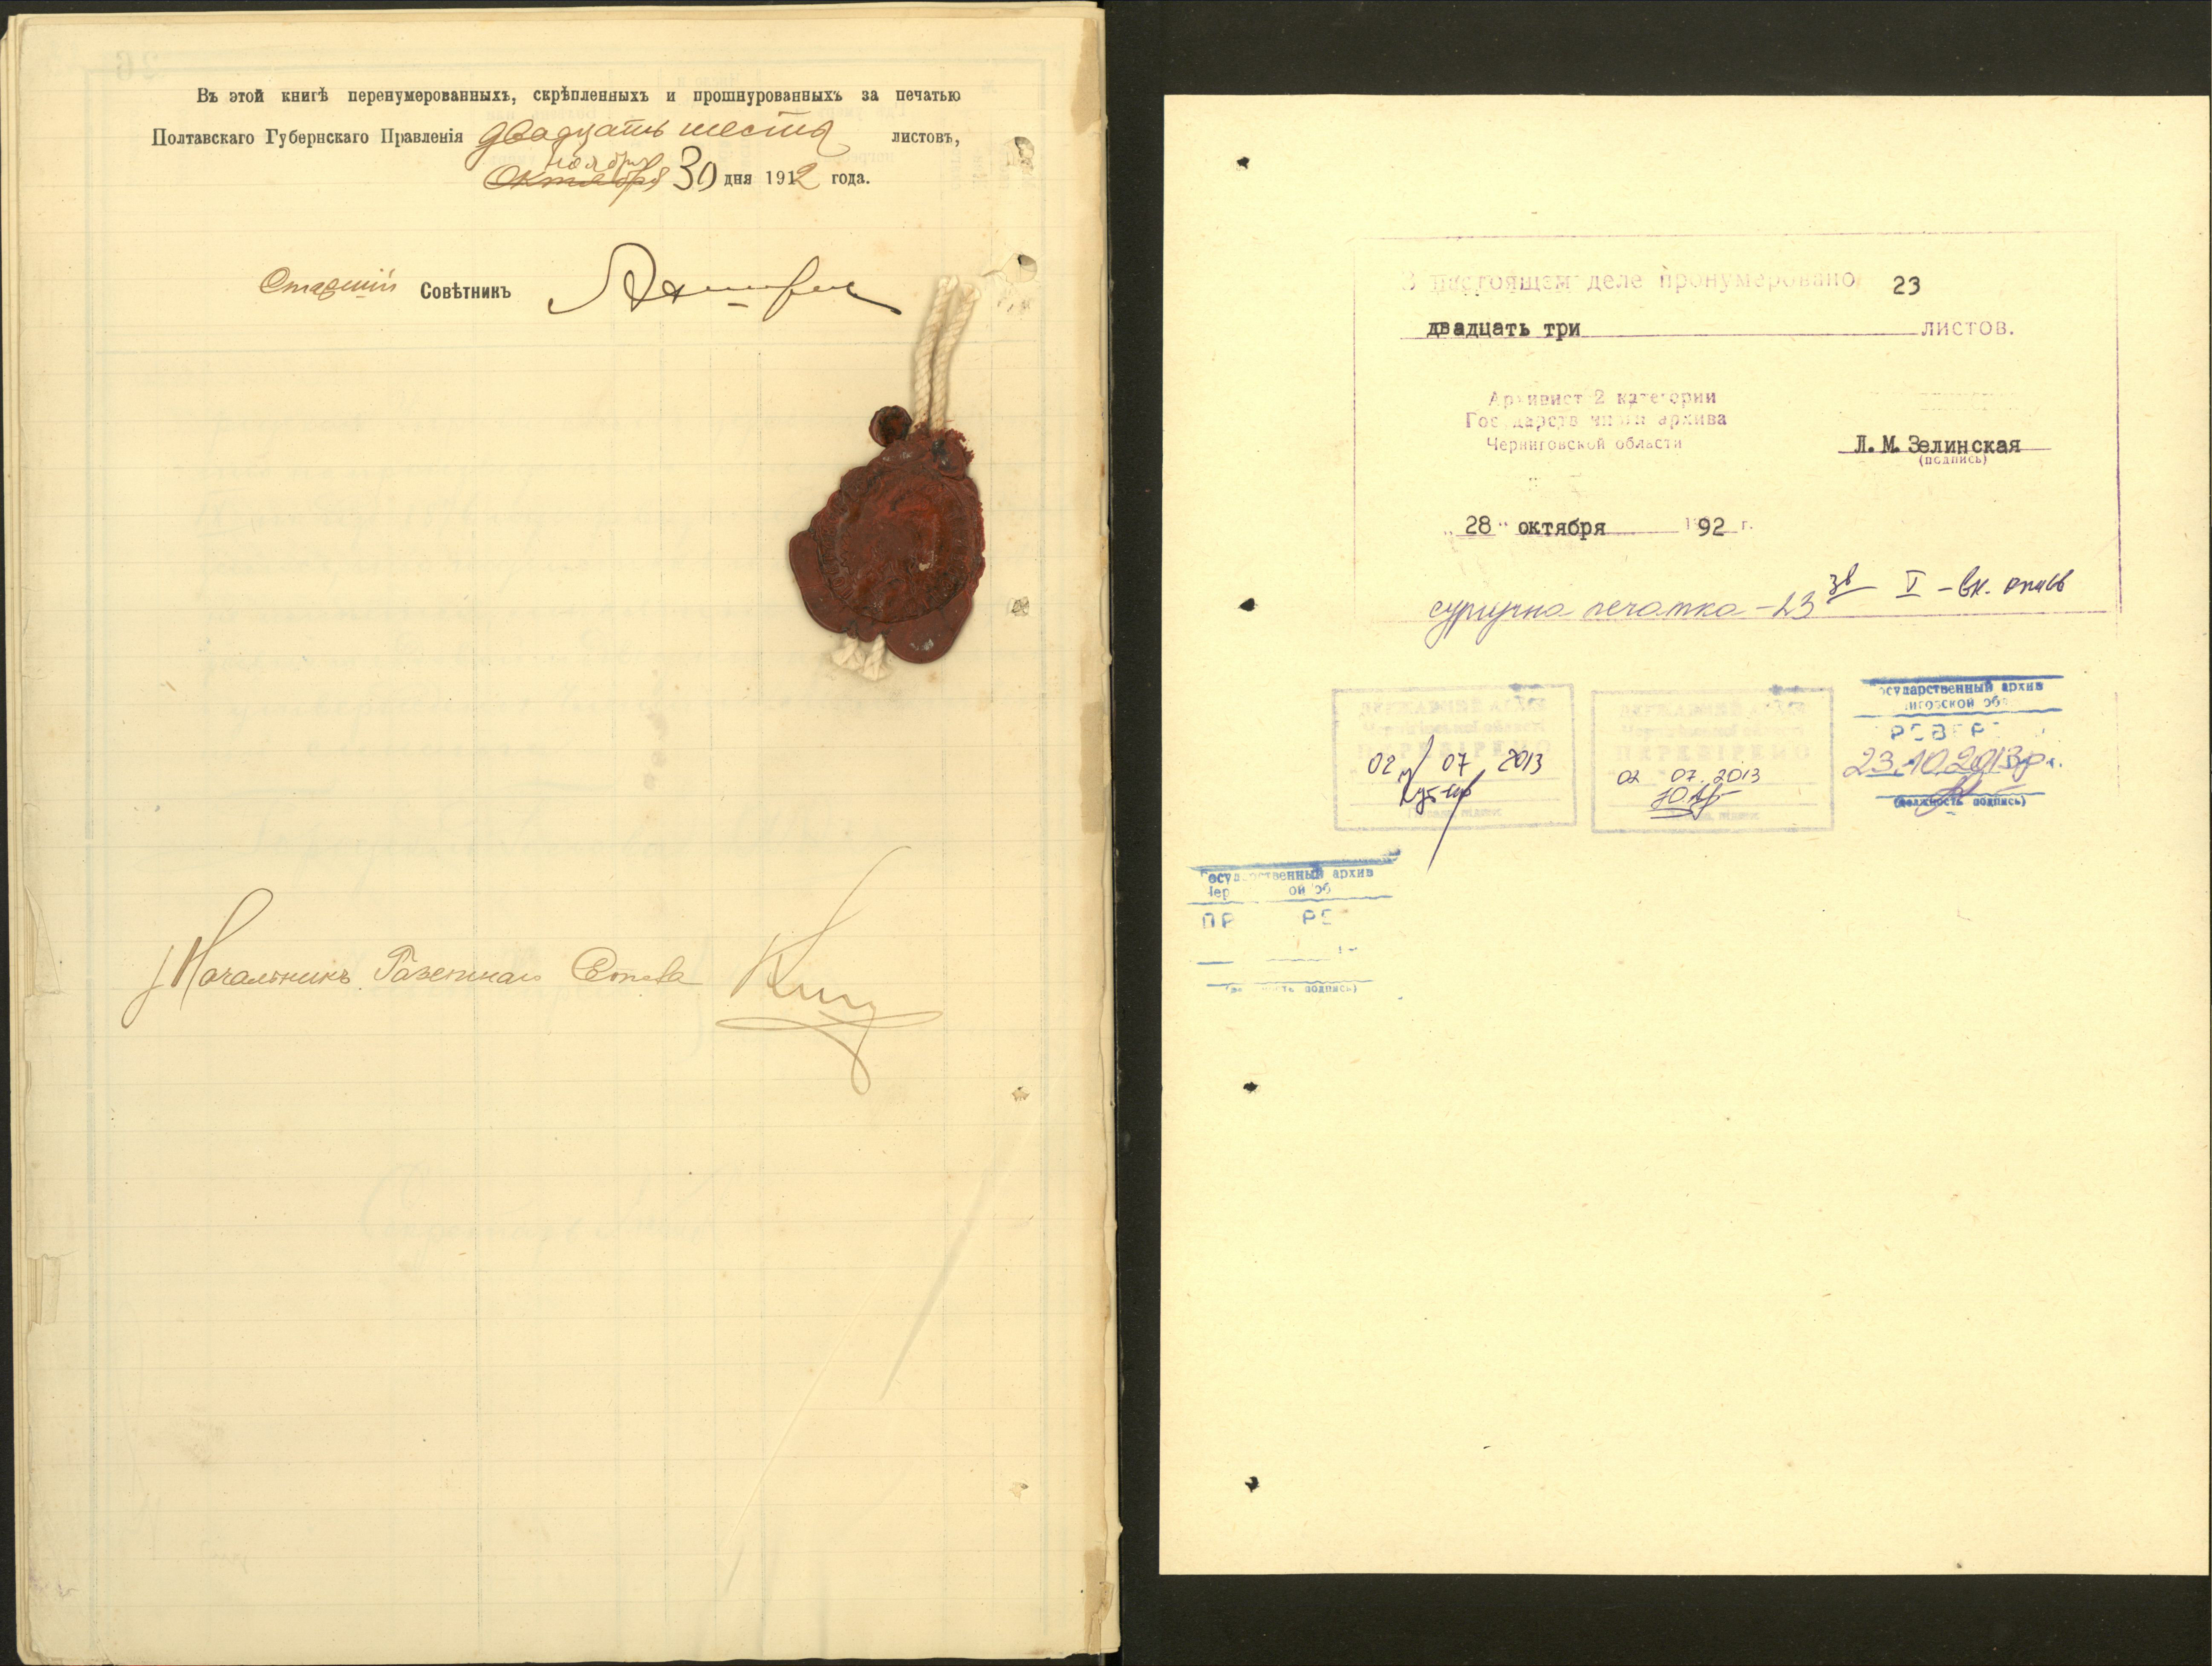 Въ этой книгѣ перенумерованныхъ, скрѣпленныхъ и прошнурованныхъ за печатью
Полтавскаго Губернскаго Правленія двадцать шесть листовъ,
ноября
Октября 30 дня 1912 года.
Старшій Совѣтникъ
Начальникъ Газетнаго Стола
В настоящем деле пронумеровано 23
двадцать три листов.
Архивист 2 категории
Государственного архива
Черниговской области
Л.М.Зелинская
(подпись)
"28" октября 1992 г.
сургучна печатка - 23 зв I - вн. опись
ДЕРЖАВНИЙ АРХІВ
Чернігівської області
ПЕРЕВІРЕНО
02 07 2013
підпис
ДЕРЖАВНИЙ АРХІВ
Чернігівської області
ПЕРЕВІРЕНО
02 07. 2013
підпис
Государственный архив
иговской об
РОВЕР
23.10.2013р.
(должность подпись)
Государственный архив
Чер ой об
ПР РЕ
подпись)